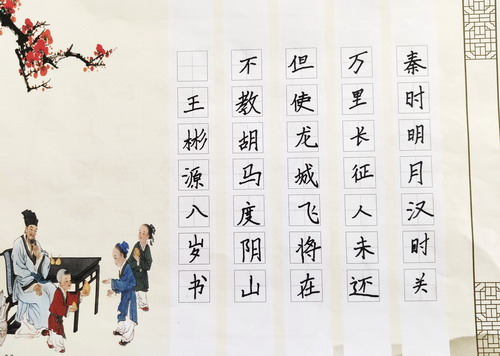 秦时明月汉时关
万里长征人未还
但使龙城飞将在
不教胡马度阴山
王彬源八岁书